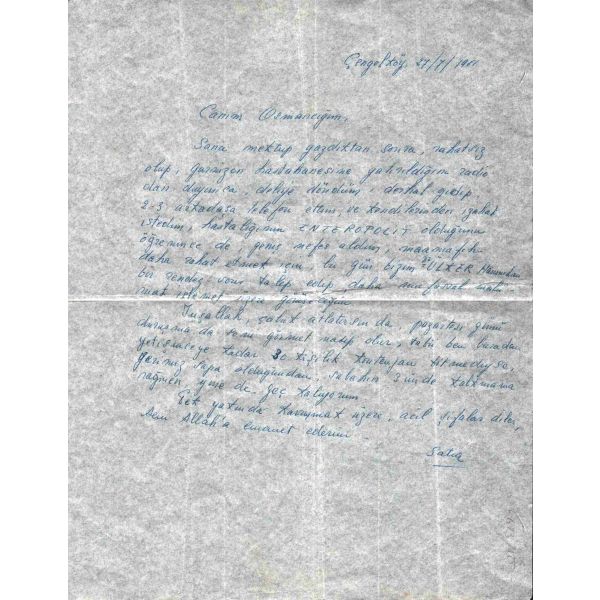 Çengelköy, 27/7/1961
Canım Osmancığım,
Sana mektup yazdıktan sonra, rahatsız
olup, garnizon hastahanesine yatırıldığını radio
dan duyunca, deliye döndüm, derhal gidip
2-3 arkadaşa telefon ettim, ve kendilerinden izahat
istedim, hastalığının ENTEROPOLİT olduğunu
öğrenince de, geniş nefes aldım, maamafih
daha rahat etmek için, bu gün bizim ÜLKER Hanımdan
bir rendez-vous talep edip daha mufassal malû-
mat istemek üzere gideceğim
İnşallah, çabuk atlatırsın da, pazartesi günü
duruşmada seni görmek nasip olur, tabii ben buradan
yetişinceye kadar 30 kişilik kontenjan bitmediyse,
yerimiz sapa olduğundan, sabahın 5 inde kalkmama
rağmen yine de geç kalıyorum.
Pek yakında kavuşmak üzere, acil şifalar diler,
seni Allah'a emanet ederim.